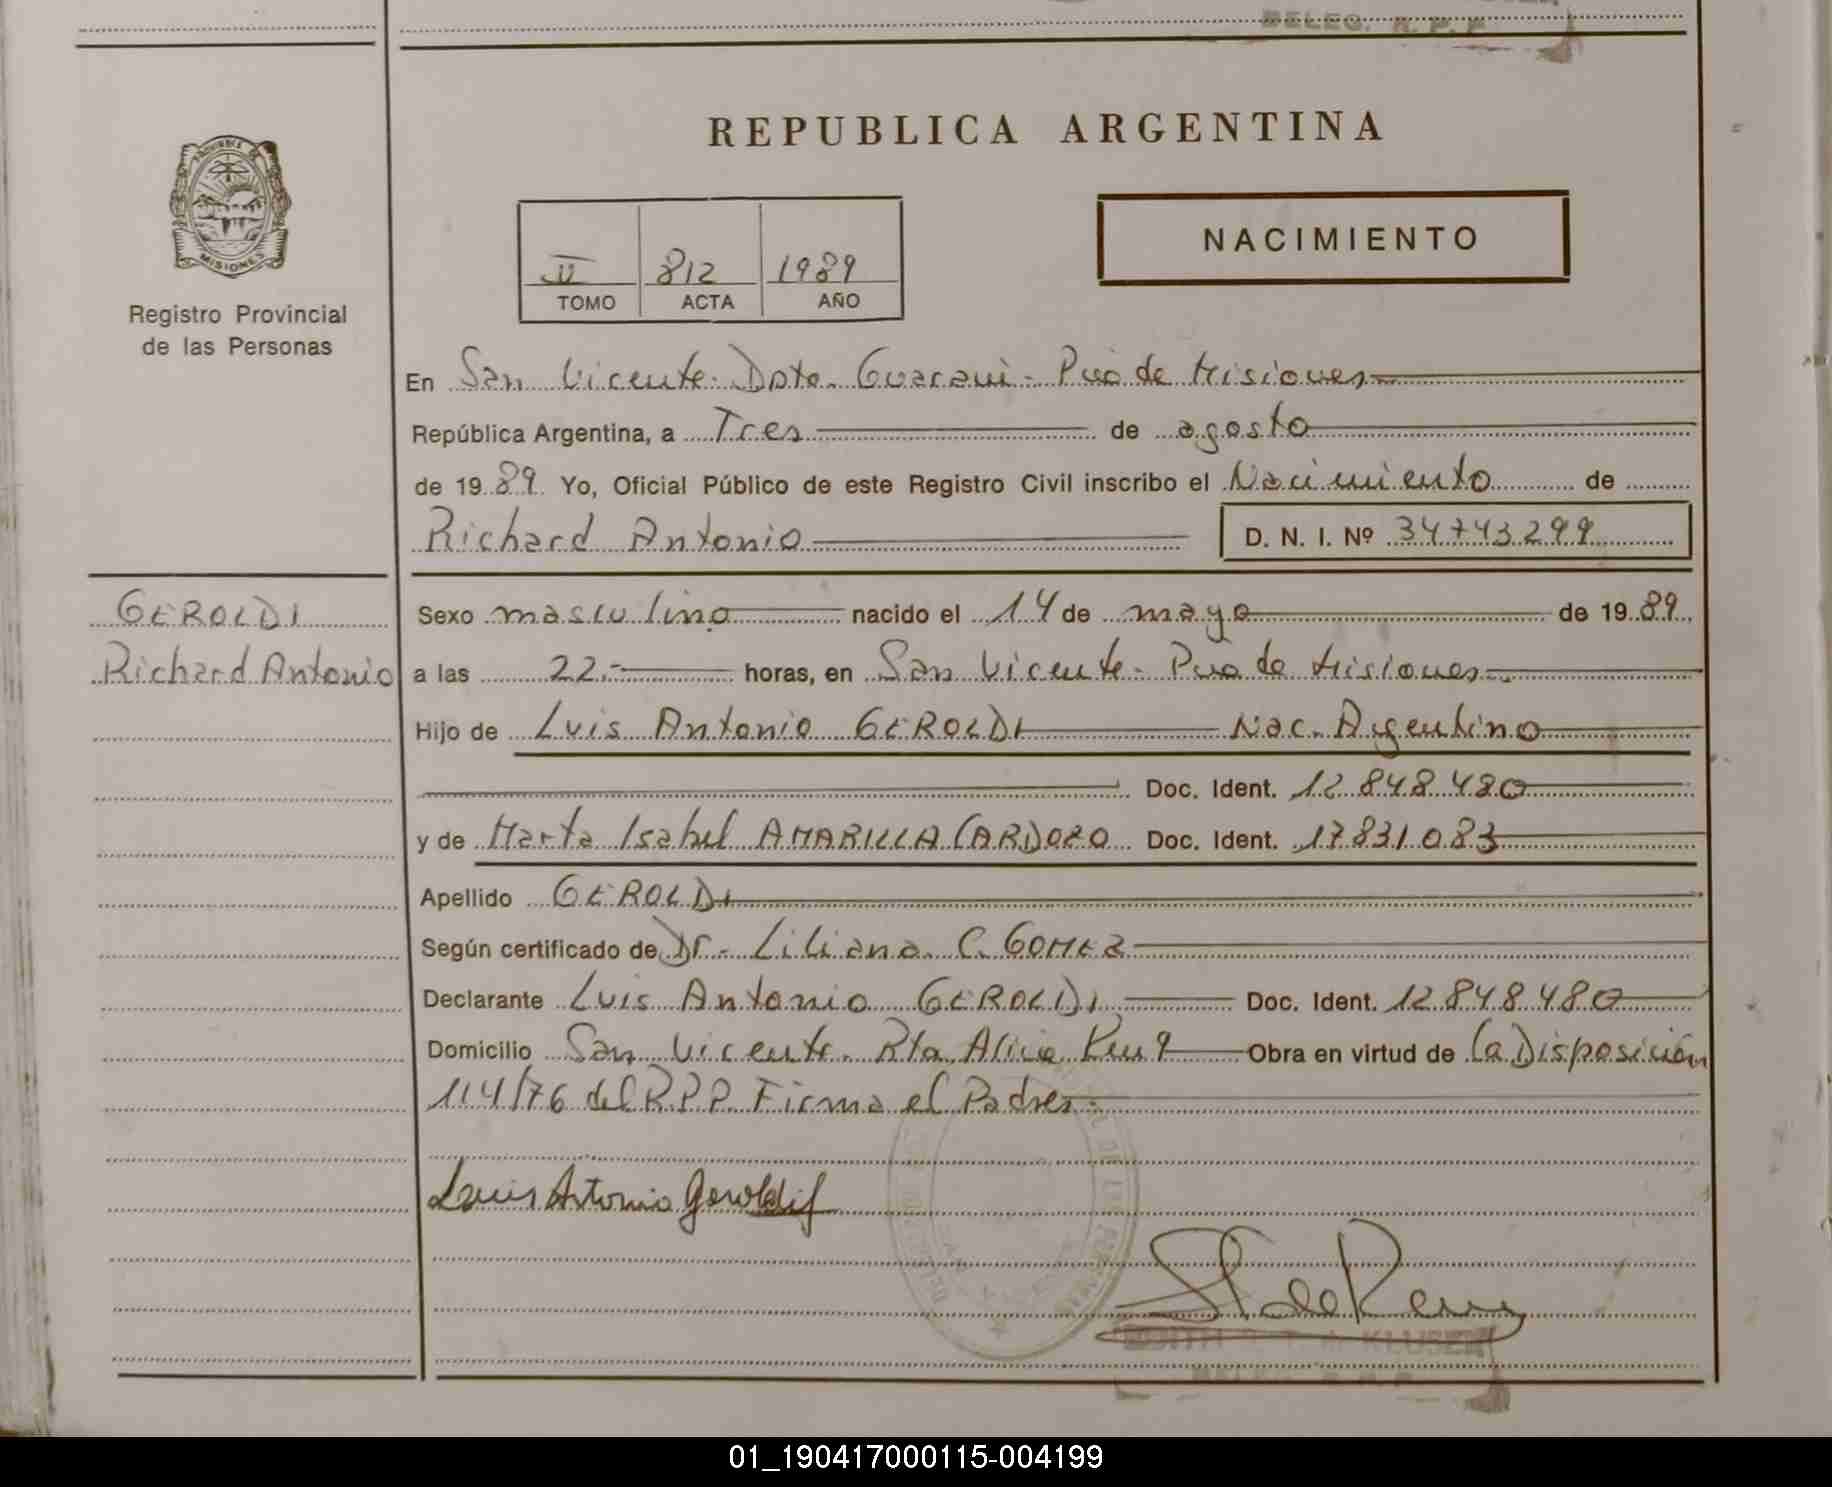 DELEG. R. P. P.
REPUBLICA ARGENTINA
PROVINCIA DE
MISIONES
Registro Provincial
de las Personas
II 812 1989
TOMO ACTA AÑO
NACIMIENTO
En San Vicente - Dpto. Guaraní - Pcia de Misiones
República Argentina, a Tres de agosto
de 1989 Yo, Oficial Público de este Registro Civil inscribo el Nacimiento de
Richard Antonio D. N. I. Nº 34743299
GEROLDI
Richard Antonio
Sexo masculino nacido el 14 de mayo de 1989
a las 22.- horas, en San Vicente - Pcia de Misiones
Hijo de Luis Antonio GEROLDI Nac. Argentino
Doc. Ident. 12.848.480
y de Marta Isabel AMARILLA CARDOZO Doc. Ident. 17.831.083
Apellido GEROLDI
Según certificado de Dr. Liliana C. GOMEZ
Declarante Luis Antonio GEROLDI Doc. Ident. 12.848.480
Domicilio San Vicente - Rta Alicia Km 9 Obra en virtud de la Disposición
114/76 del R.P.P. Firma el Padre.-
Luis Antonio Geroldi
KLUSEN
01_190417000115-004199